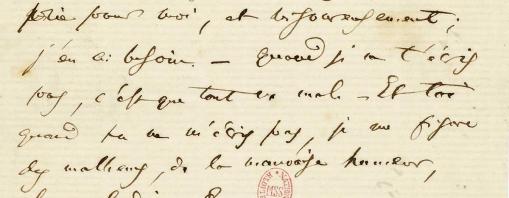 prie pour moi, et vigoureusement ;
j'en ai besoin. – Quand je ne t'écris
pas, c'est que tout va mal – Et toi
quand tu ne m'écris pas, je me figure
des malheurs, de la mauvaise humeur,